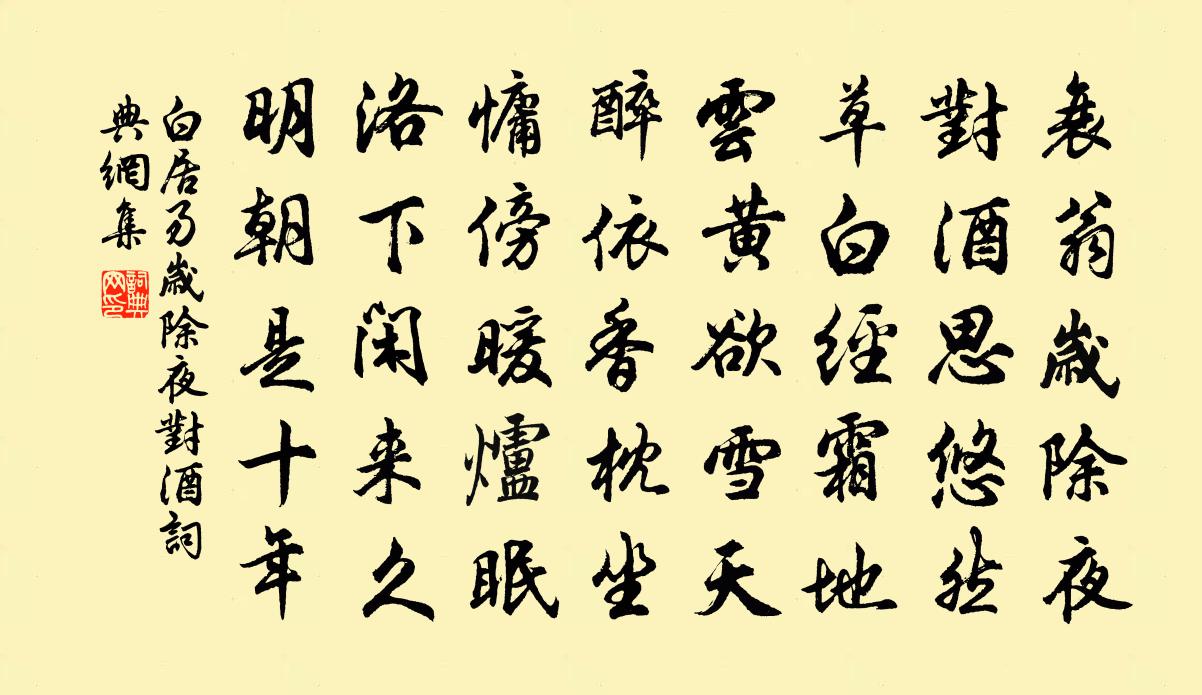 衰翁歲除夜
對酒思悠然
草白經霜地
雲黃欲雪天
醉依香枕坐
慵傍暖爐眠
洛下閑来久
明朝是十年
白居易歲除夜對酒詞
典網集
詞典網印